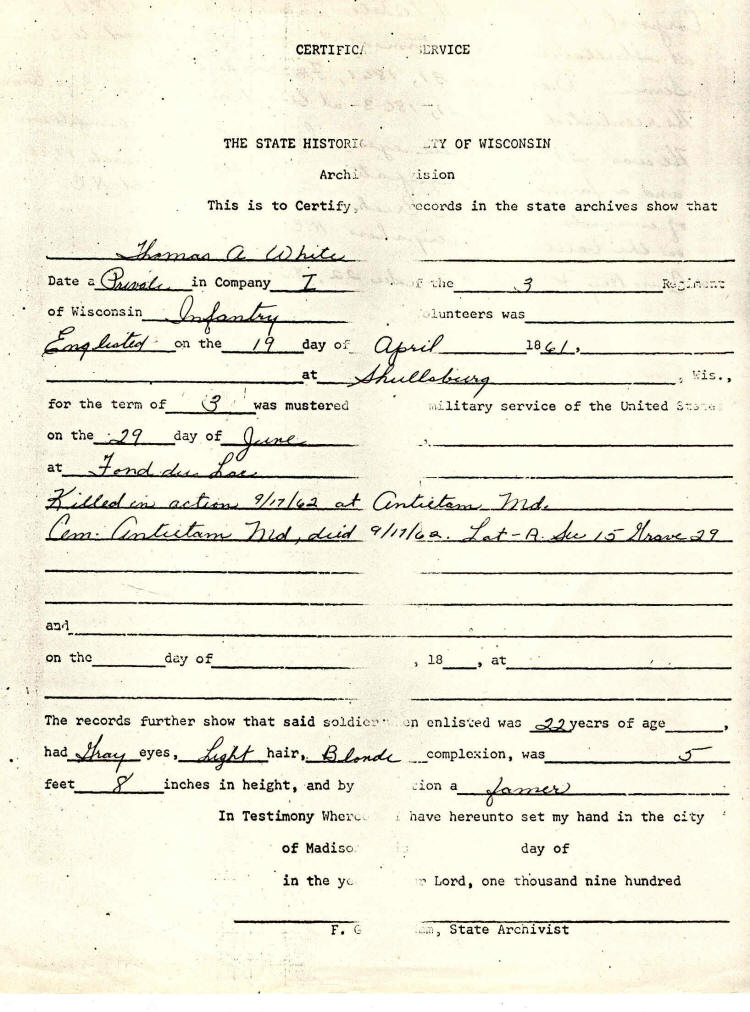 CERTIFICA ERVICE
THE STATE HISTORIC TY OF WISCONSIN
Archi ision
This is to Certify, ecords in the state archives show that
Thomas A White
Date a Private in Company I of the 3 Regiment
of Wisconsin Infantry olunteers was
Englisted on the 19 day of April 1861,
at Shullsburg, Wis.,
for the term of 3 was mustered military service of the United States
on the 29 day of June
at Fond du Lac
Killed in action 9/17/62 at Antietam Md.
Cem: Antietam Md, died 9/17/62. Lot-A. Sec 15 Grave 29
and
on the day of , 18 , at
The records further show that said soldier en enlisted was 22 years of age ,
had Gray eyes, Light hair, Blonde complexion, was 5
feet 8 inches in height, and by tion a famer
In Testimony Where have hereunto set my hand in the city
of Madiso day of
in the ye r Lord, one thousand nine hundred
F. G am, State Archivist